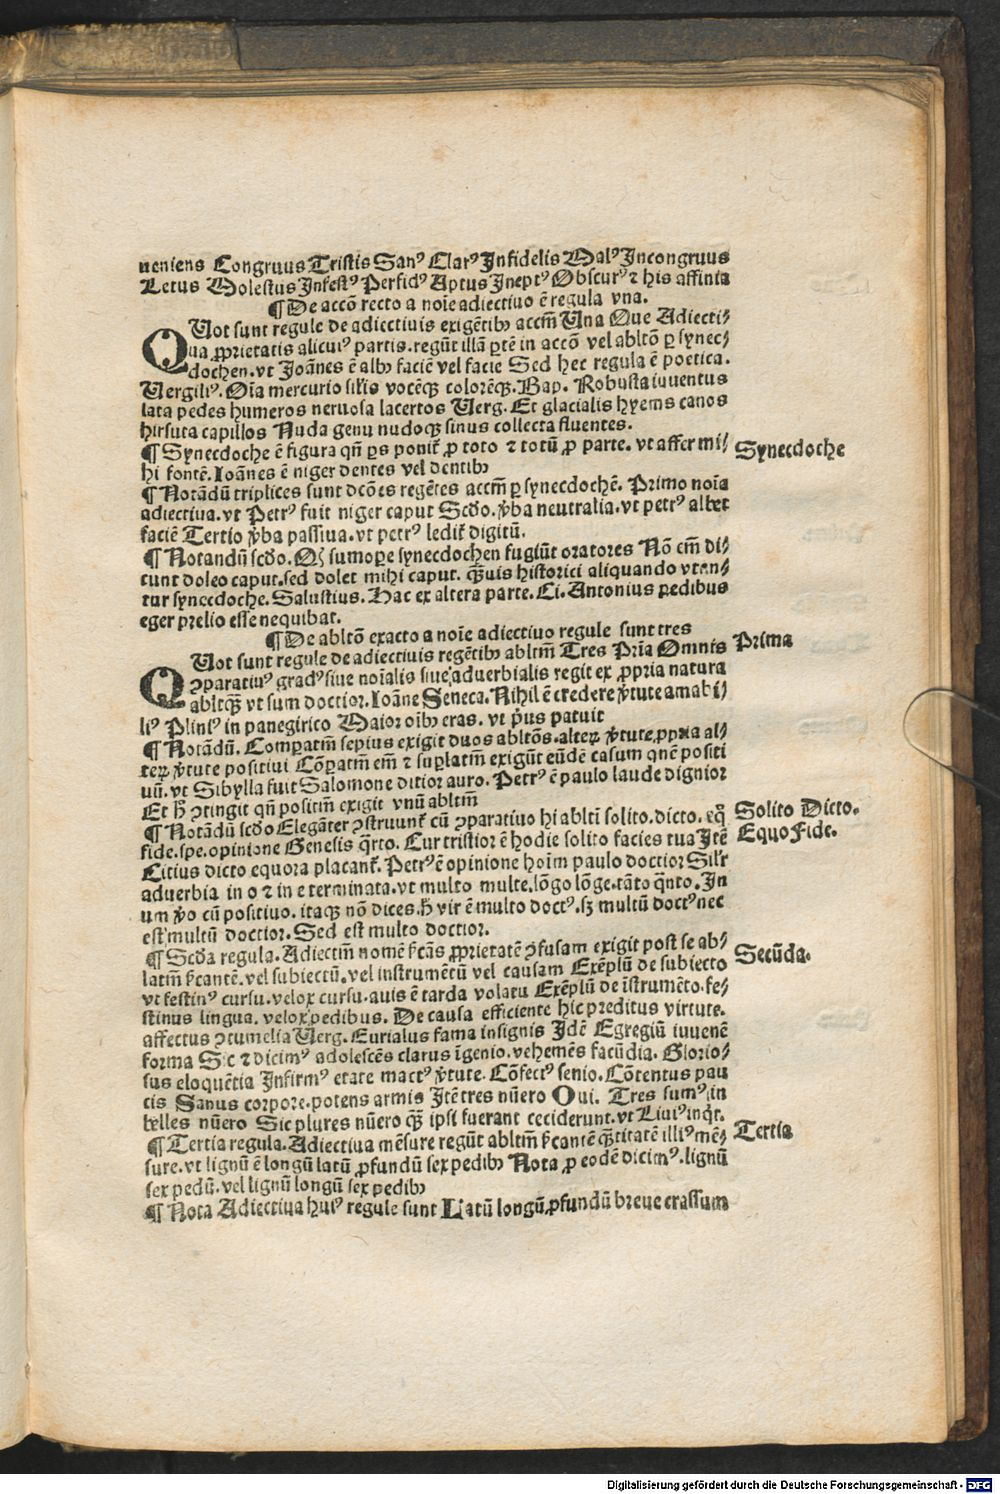 ueniens Congruus Tristis Sanꝰ Clarꝰ Infidelis Malꝰ Incongruus
Letus Molestus Infestꝰ Perfidꝰ Aptus Ineptꝰ Obscurꝰ ⁊ his affinia
¶ De accō recto a noīe adiectiuo ē regula vna.
QUot sunt regule de adiectiuis exigētibꝫ accm̄ Una Que Adiecti⸗
ua ꝓprietatis alicuiꝰ partis. regūt illā ꝑtē in accō vel abltō ꝑ synec⸗
dochen. vt Joānes ē albꝫ faciē vel facie Sed hec regula ē poetica.
Uergiliꝰ. Oīa mercurio sil̄is vocēqꝫ colorēqꝫ. Bap. Robusta iuuentus
lata pedes humeros neruosa lacertos Uerg. Et glacialis hyems canos
hirsuta capillos Nuda genu nudoqꝫ sinus collecta fluentes.
¶ Synecdoche ē figura qn̄ ꝑs ponit᷑ ꝓ toto ⁊ totū ꝓ parte. vt affer mi⸗
hi fontē. Ioānes ē niger dentes vel dentibꝫ
Synecdoche
¶ Notādū triplices sunt dc̄oēs regētes accm̄ ꝑ synecdochē. Primo noīa
adiectiua. vt Petrꝰ fuit niger caput Scd̄o. v̄ba neutralia. vt petrꝰ albet
faciē Tertio v̄ba passiua. vt petrꝰ ledit᷑ digitū.
¶ Notandū scd̄o. Qꝫ sumoꝑe synecdochen fugiūt oratores Nō em̄ di⸗
cunt doleo caput. sed dolet mihi caput. qꝫuis historici aliquando vtan⸗
tur synecdoche. Salustius. Hac ex altera parte. Ci. Antonius pedibus
eger prelio esse nequibat.
¶ De abltō exacto a noīe adiectiuo regule sunt tres
QUot sunt regule de adiectiuis regētibꝫ abltm̄ Tres Prīa Omnis
ꝯparatiuꝰ gradꝰ siue noīalis siue aduerbialis regit ex ꝓpria natura
abltqꝫ vt sum doctior. Ioāne Seneca. Nihil ē credere v̄tute amabi⸗
liꝰ Pliniꝰ in panegirico Maior oībꝫ eras. vt pͥus patuit
Prima
¶ Notādū. Comꝑatm̄ sepius exigit duos abltōs. alteꝝ v̄tute. ꝓpria al⸗
teꝝ v̄tute positiui Cōꝑatm̄ em̄ ⁊ suꝑlatm̄ exigūt eūdē casum quē positi
uū. vt Sibylla fuit Salomone ditior auro. Petrꝰ ē paulo laude dignior
Et h̄ ꝯtingit qn̄ positm̄ exigit vnū abltm̄
¶ Notādū scd̄o Elegāter ꝯstruunt᷑ cū ꝯparatiuo hi ablti solito. dicto. eqͦ
fide. spe. opinione Genesis qͣrto. Cur tristior ē hodie solito facies tua Itē
Citius dicto equora placant᷑. Petrꝰ ē opinione hoīm paulo doctior Sil᷑r
aduerbia in o ⁊ in e terminata. vt multo multe. lōgo lōge. tāto qͣnto. In
um v̄o cū positiuo. itaqꝫ nō dices. h̄ vir ē multo doctꝰ. sꝫ multū doctꝰ nec
est multū doctior. Sed est multo doctior.
Solito Dicto.
Equo Fide.
¶ Scd̄a regula. Adiectm̄ nomē s̄cās ꝓprietatē ꝯfusam exigit post se ab⸗
latm̄ s̄cantē. vel subiectū. vel instrumētū vel causam Exēplū de subiecto
vt festinꝰ cursu. velox cursu. auis ē tarda volatu Exēplū de īstrumēto. fe⸗
stinus lingua. velox pedibus. De causa efficiente hic preditus virtute.
affectus ꝯtumelia Uerg. Eurialus fama insignis Idē Egregiū iuuenē
forma Sic ⁊ dicimꝰ adolescēs clarus īgenio. vehemēs facūdia. Glorio⸗
sus eloquētia Infirmꝰ etate mactꝰ v̄tute. Cōfectꝰ senio. Cōtentus pau
cis Sanus corpore. potens armis Itē tres nūero Qui. Tres sumꝰ in
belles nūero Sic plures nūero qꝫ ipsi fuerant ceciderunt. vt Liuiꝰ inqͥt.
Secūda.
¶ Tertia regula. Adiectiua mēsure regūt abltm̄ s̄cantē qꝫtitatē illiꝰ mē⸗
sure. vt lignū ē longū latū ꝓfundū sex pedibꝫ Nota ꝓ eodē dicimꝰ. lignū
sex pedū. vel lignū longū sex pedibꝫ
Tertia
¶ Nota Adiectiua huiꝰ regule sunt Latū longū. ꝓfundū breue crassum
Digitalisierung gefördert durch die Deutsche Forschungsgemeinschaft - DFG